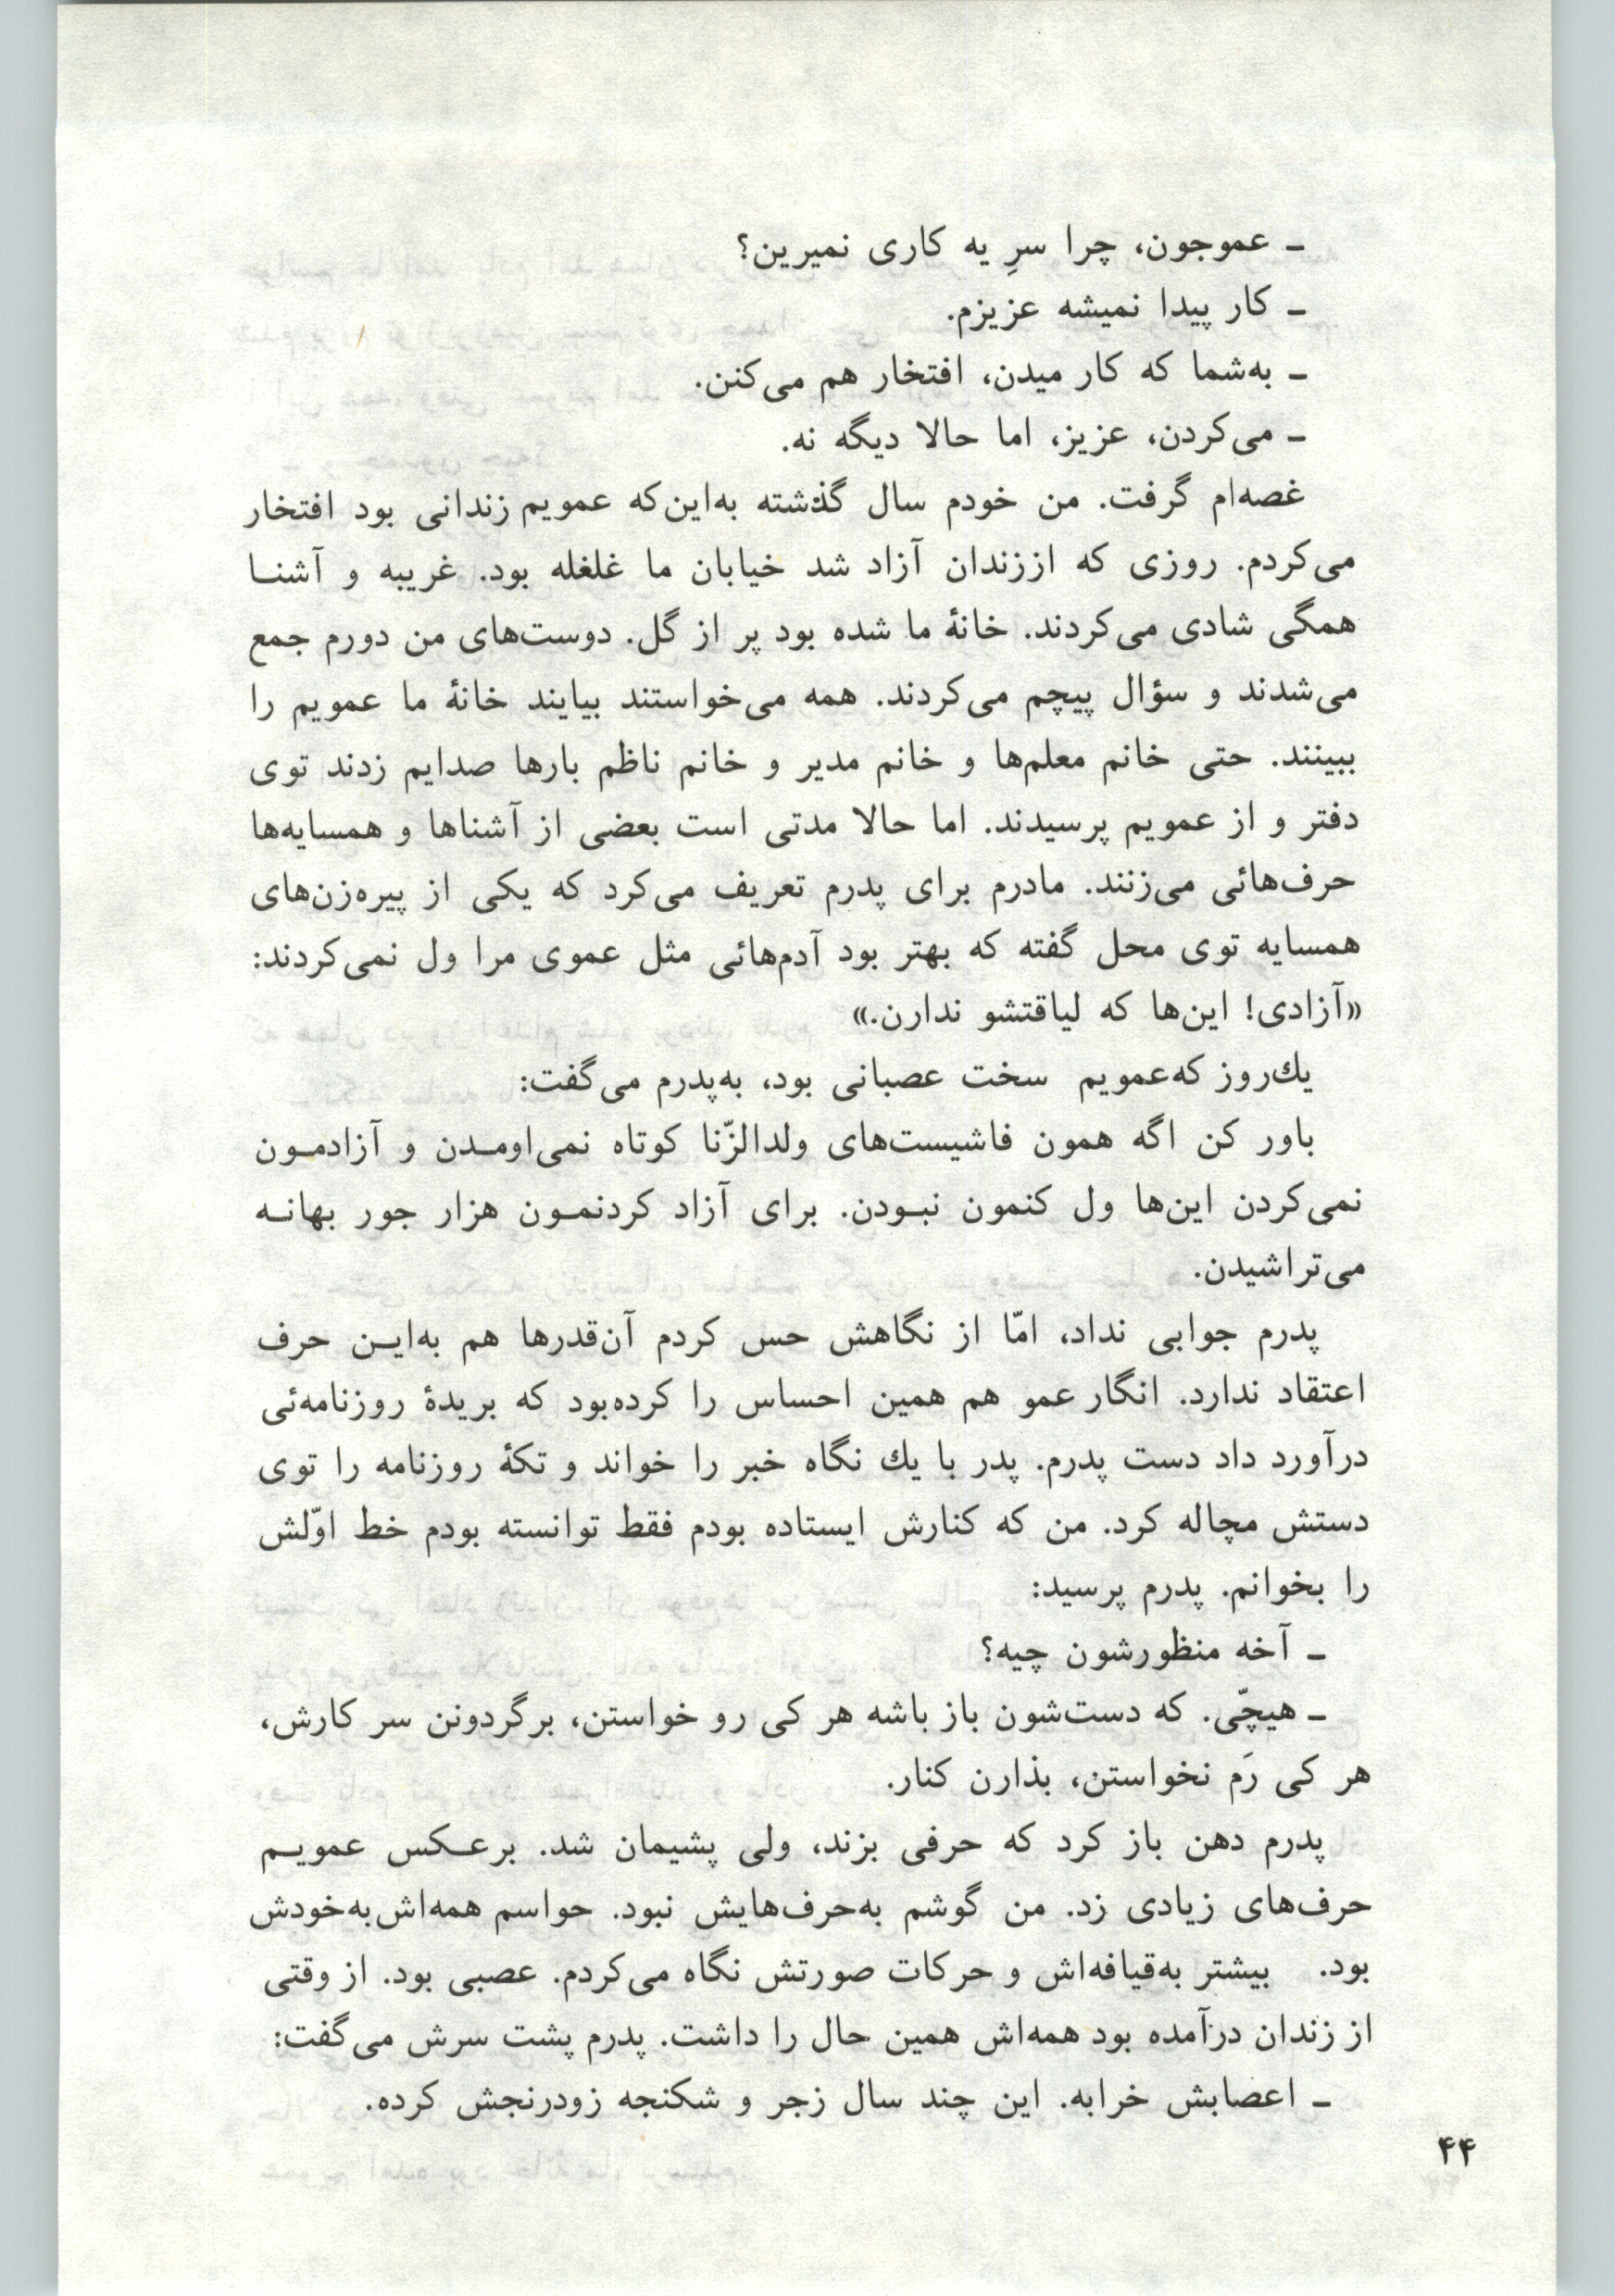 ـ عموجون، چرا سرِ یه کاری نمیرین؟
ـ کار پیدا نمیشه عزیزم.
ـ به‌شما که کار میدن، افتخار هم می‌کنن.
ـ می‌کردن، عزیز، اما حالا دیگه نه.
غصه‌ام گرفت. من خودم سال گذشته به‌این‌که عمویم زندانی بود افتخار
می‌کردم. روزی که اززندان آزاد شد خیابان ما غلغله بود. غریبه و آشنـا
همگی شادی می‌کردند. خانهٔ ما شده بود پر از گل. دوست‌های من دورم جمع
می‌شدند و سؤال پیچم می‌کردند. همه می‌خواستند بیایند خانهٔ ما عمویم را
ببینند. حتی خانم معلم‌ها و خانم مدیر و خانم ناظم بارها صدایم زدند توی
دفتر و از عمویم پرسیدند. اما حالا مدتی است بعضی از آشناها و همسایه‌ها
حرف‌هائی می‌زنند. مادرم برای پدرم تعریف می‌کرد که یکی از پیره‌زن‌های
همسایه توی محل گفته که بهتر بود آدم‌هائی مثل عموی مرا ول نمی‌کردند:
«آزادی! این‌ها که لیاقتشو ندارن.»
یك‌روز که‌عمویم سخت عصبانی بود، به‌پدرم می‌گفت:
باور کن اگه همون فاشیست‌های ولدالزّنا کوتاه نمی‌اومـدن و آزادمـون
نمی‌کردن این‌ها ول کنمون نبـودن. برای آزاد کردنمـون هزار جور بهانـه
می‌تراشیدن.
پدرم جوابی نداد، امّا از نگاهش حس کردم آن‌قدرها هم به‌ایـن حرف
اعتقاد ندارد. انگار عمو هم همین احساس را کرده‌بود که بریدهٔ روزنامه‌ئی
درآورد داد دست پدرم. پدر با یك نگاه خبر را خواند و تکهٔ روزنامه را توی
دستش مچاله کرد. من که کنارش ایستاده بودم فقط توانسته بودم خط اوّلش
را بخوانم. پدرم پرسید:
ـ آخه منظورشون چیه؟
ـ هیچّی. که دست‌شون باز باشه هر کی رو خواستن، برگردونن سر کارش،
هر کی رَم نخواستن، بذارن کنار.
پدرم دهن باز کرد که حرفی بزند، ولی پشیمان شد. برعـکس عمویـم
حرف‌های زیادی زد. من گوشم به‌حرف‌هایش نبود. حواسم همه‌اش‌به‌خودش
بود. بیشتر به‌قیافه‌اش و حرکات صورتش نگاه می‌کردم. عصبی بود. از وقتی
از زندان درآمده بود همه‌اش همین حال را داشت. پدرم پشت سرش می‌گفت:
ـ اعصابش خرابه. این چند سال زجر و شکنجه زودرنجش کرده.
۴۴